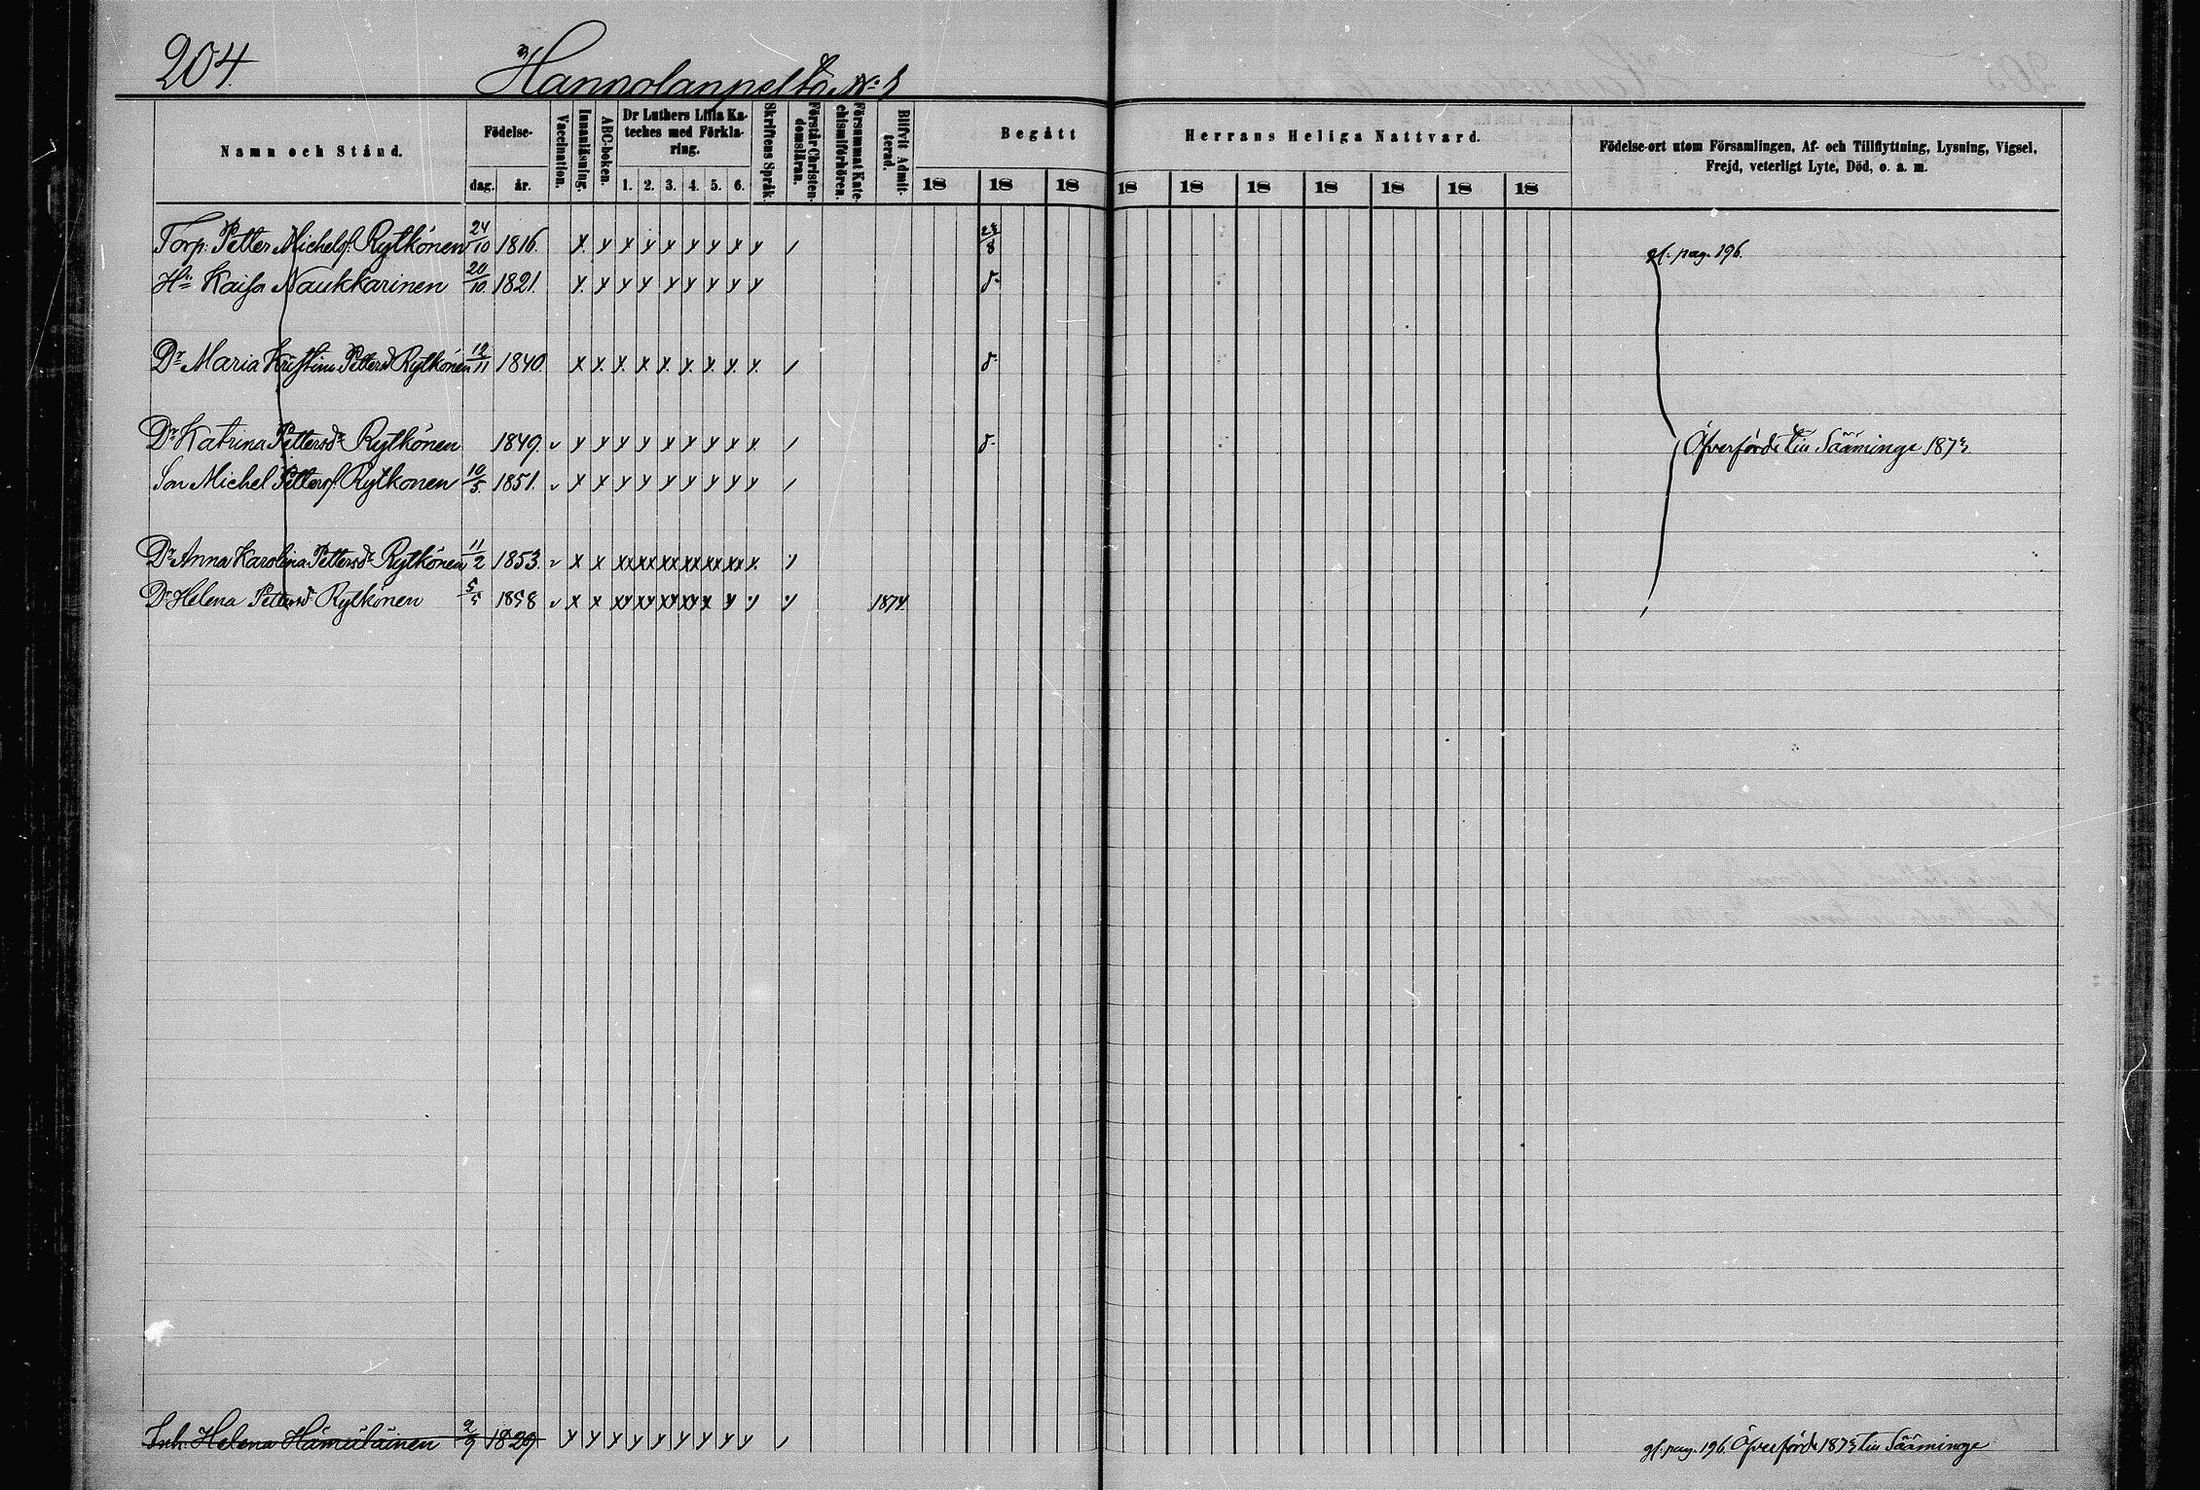 204.
Hannolanpelto No 1
Namn och Stånd.
Födelse-
dag. år.
Vaccination.
Innanläsning.
ABC-boken.
Dr Luthers Lilla Ka-
teches med Förkla-
ring.
1. 2. 3. 4. 5. 6.
Skriftens Språk.
Förstår Christen-
domsläran.
Försummat Kate-
chismiförhören.
Blifvit Admit-
terad.
Begått Herrans Heliga Nattvard.
18 18 18 18 18 18 18 18 18 18
Födelse-ort utom Församlingen, Af- och Tillflyttning, Lysning, Vigsel,
Frejd, veterligt Lyte, Död, o. a. m.
Torp: Petter Michelsf. Rytkönen 24/10 1816. x. y x y x y x y y / gl. pag. 196.
Hu Kaisa Naukkarinen 20/10. 1821. y. y y y y y y y y
Dr Maria Kristina Pettersd Rytkönen 12/11 1840. x x. x. x x x. x. x. x. /
Dr Katrina Pettersdr Rytkönen 1849. v y y y y y y x y x. / Öfverförde till Sääminge 187
Son Michel Pettersf. Rytkönen 10/5. 1851. v y x y y y y y y y /
Dr Anna Karolina Pettersdr Rytkönen 11/2 1853. v x x xx xx xx xx xx xx x.
Dr Helena Pettersd Rytkönen 5/5 1858 v x x xy xy xy xy x y 1874.
Inh. Helena Hämäläinen 2/9 1829 y y y y y y y y y / gl. pag. 196. Öfverförde 187 till Sääminge